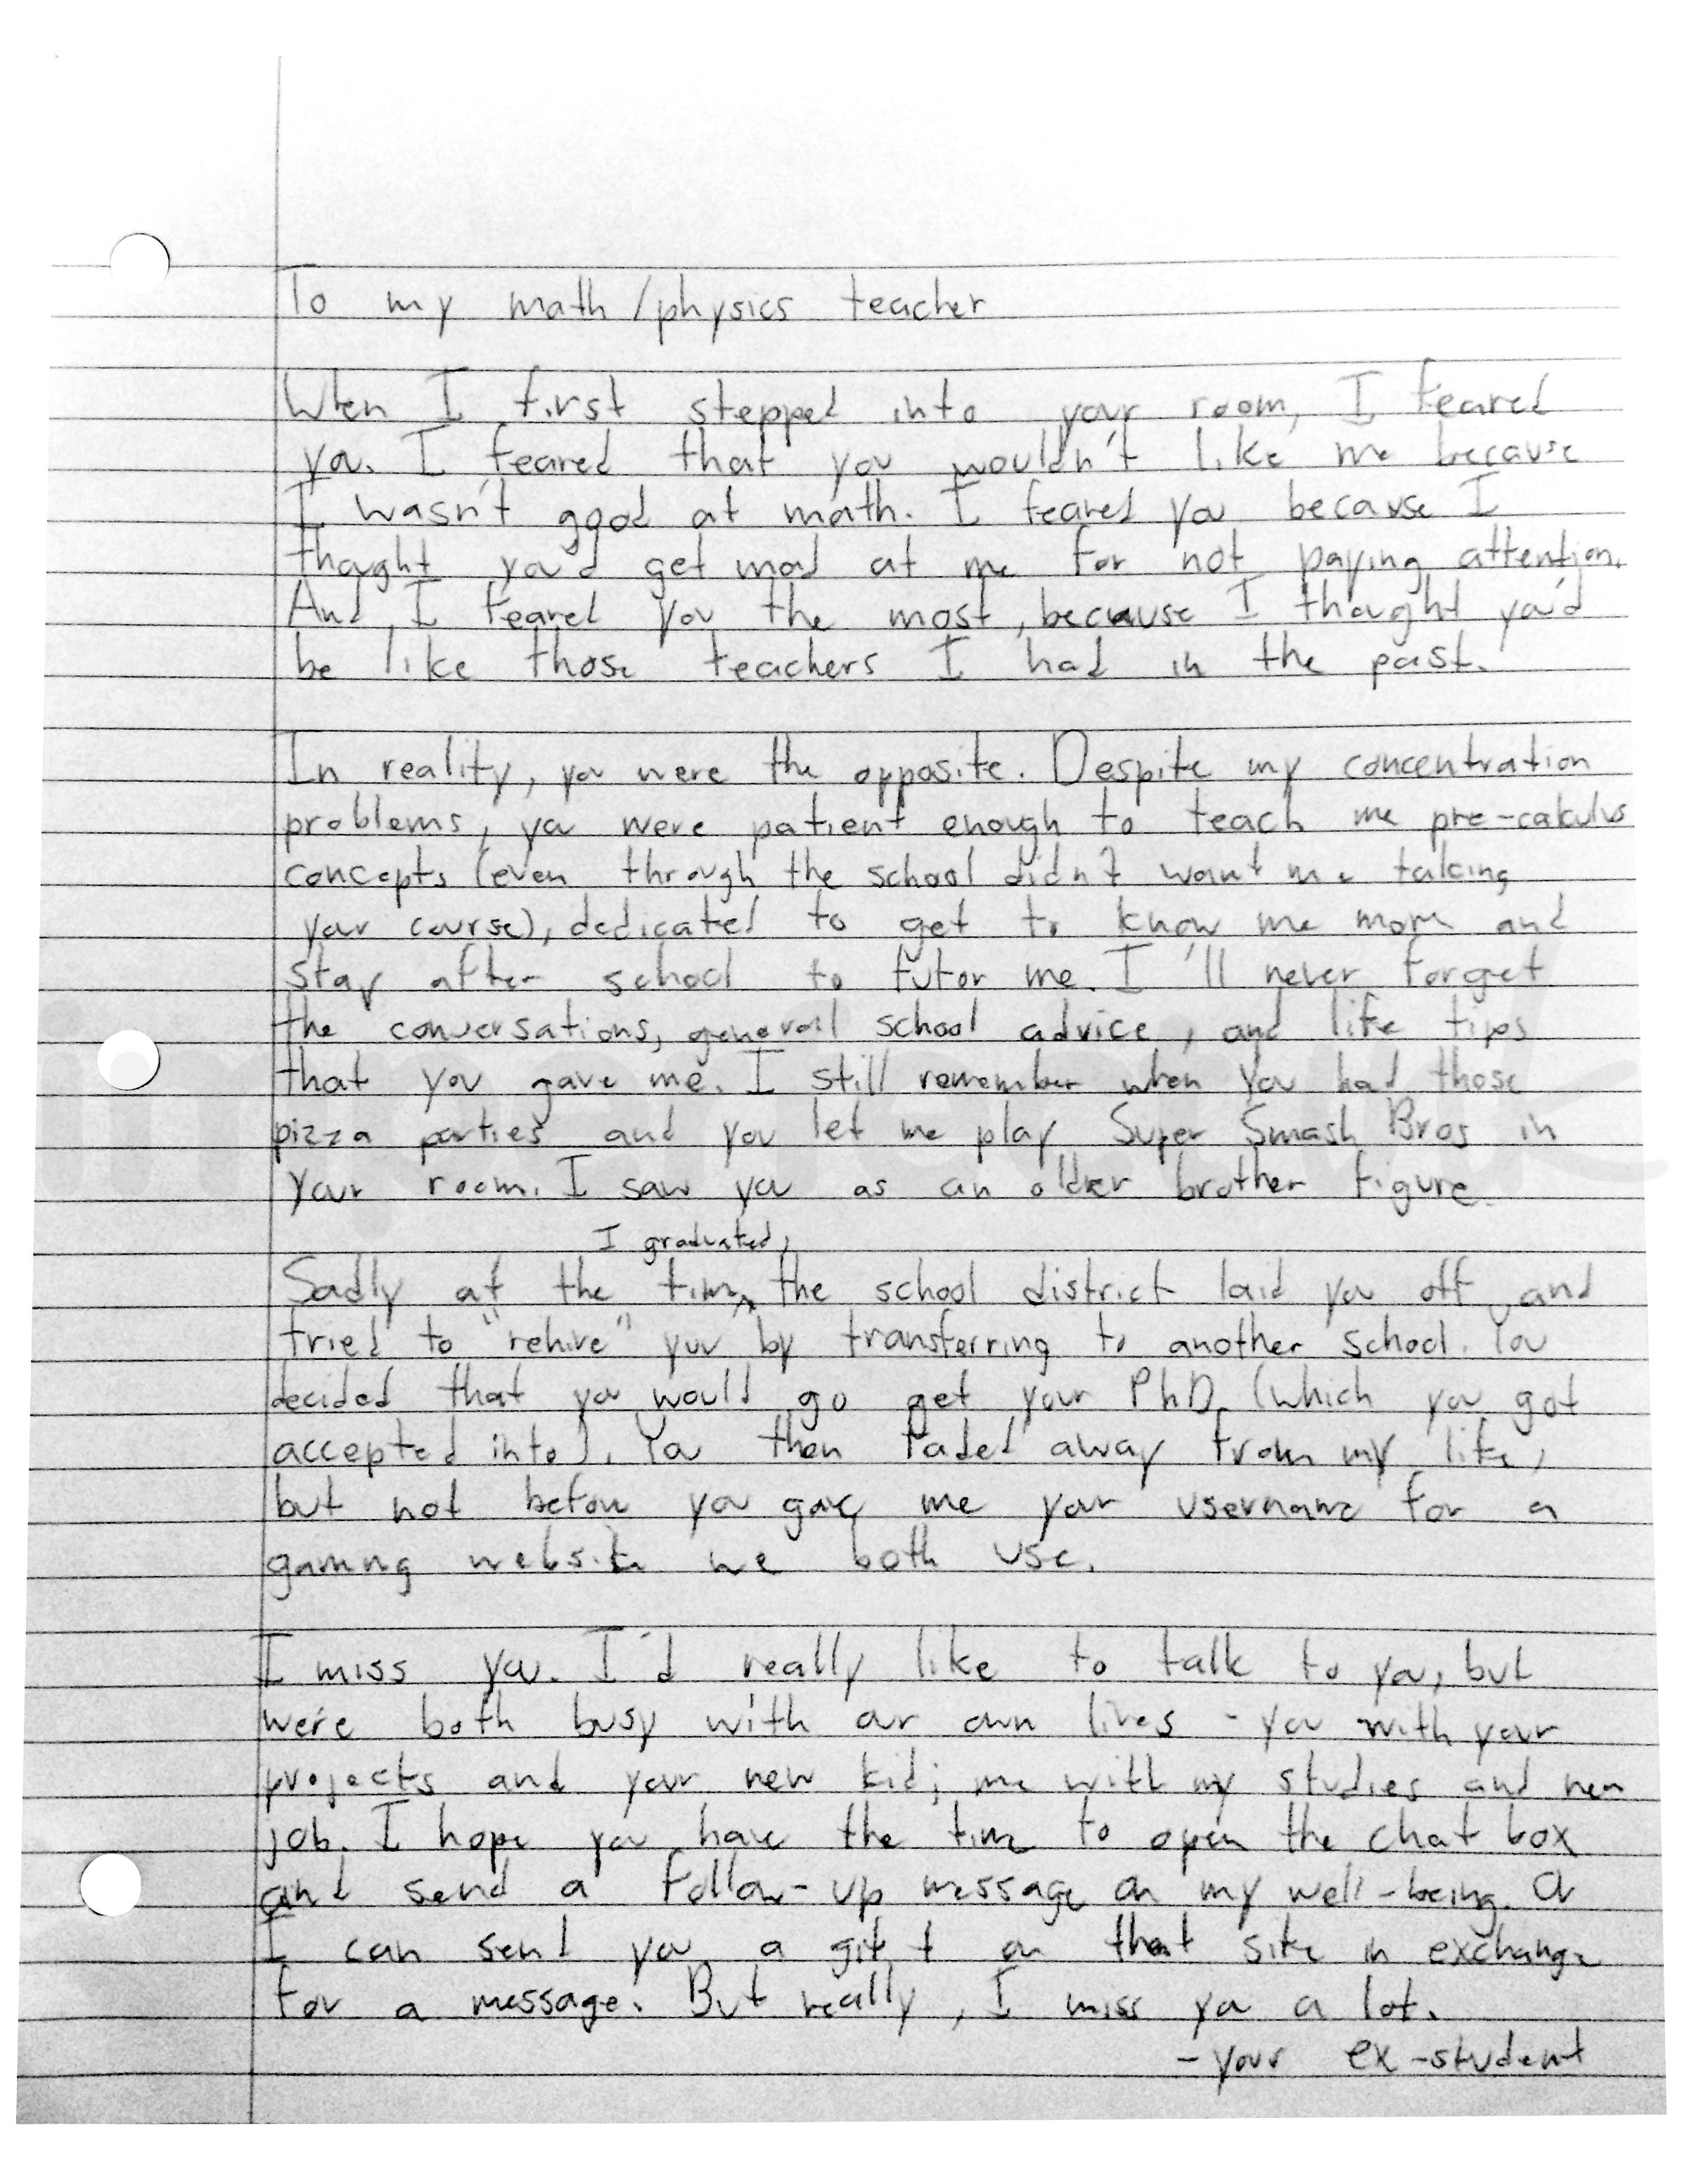 To my math/physics teacher
When I first stepped into your room, I feared
you. I feared that you wouldn't like me because
I wasn't good at math. I feared you because I
thought you'd get mad at me for not paying attention.
And I feared you the most, because I thought you'd
be like those teachers I had in the past.
In reality, you were the opposite. Despite my concentration
problems, you were patient enough to teach me pre-calculus
concepts (even through the school didn't want me taking
your course), dedicated to get to know me more and
stay after school to tutor me. I'll never forget
the conversations, general school advice, and life tips
that you gave me. I still remember when you had those
pizza parties and you let me play Super Smash Bros in
your room. I saw you as an older brother figure.
I graduated,
Sadly at the time ^ the school district laid you off and
tried to "rehire" you by transferring to another school. You
decided that you would go get your PhD (which you got
accepted into). You then faded away from my life,
but not before you gave me your username for a
gaming website we both use.
I miss you. I'd really like to talk to you, but
we're both busy with our own lives - you with your
projects and your new kid; me with my studies and new
job. I hope you have the time to open the chat box
and send a follow-up message on my well-being. Or
I can send you a gift on that site in exchange
for a message. But really, I miss you a lot.
- your ex-student